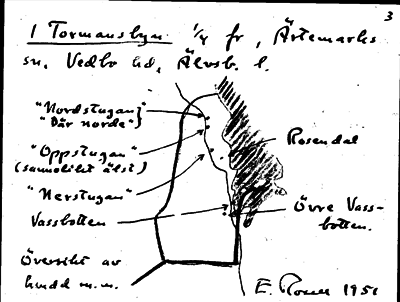 3
1 Tormansbyn 1/4 fr, Ärtemarks
sn. Vedbo hd, Älvsb. l.
"Nordstugan"
"Där norde"
"Oppstugan"
(sannolikt älst)
Rosendal
"Nerstugan"
Vassbotten
Övre Vass-
botten.
Översikt av
m.m.
E. 1951